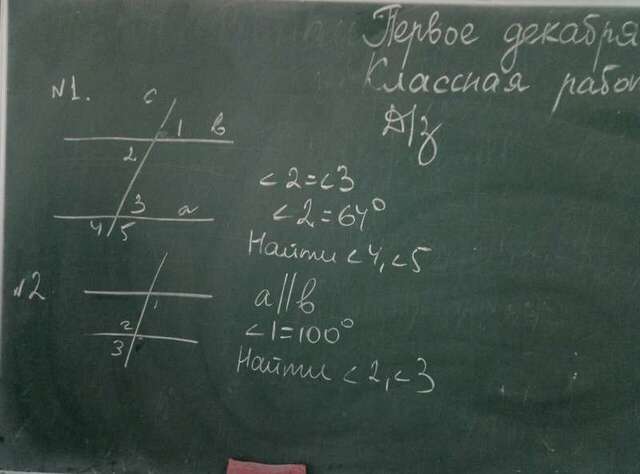 Первое декабря
Классная рабо
Д/з
№1.
c
1
b
2
3
a
4
5
<2=<3
<2=64°
Найти <4,<5
№2
1
2
3
a||b
<1=100°
Найти <2,<3